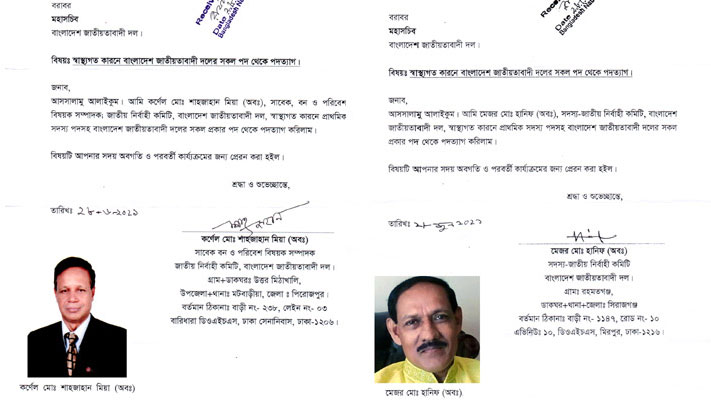 বরাবর
মহাসচিব
বাংলাদেশ জাতীয়তাবাদী দল।
বিষয়ঃ স্বাস্থ্যগত কারনে বাংলাদেশ জাতীয়তাবাদী দলের সকল পদ থেকে পদত্যাগ।
জনাব,
আসসালামু আলাইকুম। আমি কর্ণেল মোঃ শাহজাহান মিয়া (অবঃ), সাবেক, বন ও পরিবেশ
বিষয়ক সম্পাদক; জাতীয় নির্বাহী কমিটি, বাংলাদেশ জাতীয়তাবাদী দল, স্বাস্থ্যগত কারনে প্রাথমিক
সদস্য পদসহ বাংলাদেশ জাতীয়তাবাদী দলের সকল প্রকার পদ থেকে পদত্যাগ করিলাম।
বিষয়টি আপনার সদয় অবগতি ও পরবর্তী কার্যক্রমের জন্য প্রেরন করা হইল।
শ্রদ্ধা ও শুভেচ্ছান্তে,
তারিখঃ ২৮-৬-২০২১
কর্ণেল মোঃ শাহজাহান মিয়া (অবঃ)
সাবেক বন ও পরিবেশ বিষয়ক সম্পাদক
জাতীয় নির্বাহী কমিটি, বাংলাদেশ জাতীয়তাবাদী দল।
গ্রাম+ডাকঘরঃ উত্তর মিঠাখালি,
উপজেলা+থানাঃ মটবাড়ীয়া, জেলা ঃ পিরোজপুর।
বর্তমান ঠিকানাঃ বাড়ী নং- ২৩৮, লেইন নং- ০৩
বারিধারা ডিওএইচএস, ঢাকা সেনানিবাস, ঢাকা-১২০৬।
কর্ণেল মোঃ শাহজাহান মিয়া (অবঃ)
বরাবর
মহাসচিব
বাংলাদেশ জাতীয়তাবাদী দল।
বিষয়ঃ স্বাস্থ্যগত কারনে বাংলাদেশ জাতীয়তাবাদী দলের সকল পদ থেকে পদত্যাগ।
জনাব,
আসসালামু আলাইকুম। আমি মেজর মোঃ হানিফ (অবঃ), সদস্য-জাতীয় নির্বাহী কমিটি, বাংলাদেশ
জাতীয়তাবাদী দল, স্বাস্থ্যগত কারনে প্রাথমিক সদস্য পদসহ বাংলাদেশ জাতীয়তাবাদী দলের সকল
প্রকার পদ থেকে পদত্যাগ করিলাম।
বিষয়টি আপনার সদয় অবগতি ও পরবর্তী কার্যক্রমের জন্য প্রেরন করা হইল।
শ্রদ্ধা ও শুভেচ্ছান্তে,
তারিখঃ জুন ২০২১
মেজর মোঃ হানিফ (অবঃ)
সদস্য-জাতীয় নির্বাহী কমিটি
বাংলাদেশ জাতীয়তাবাদী দল।
গ্রামঃ রহমতগঞ্জ,
ডাকঘর+থানা+জেলাঃ সিরাজগঞ্জ
বর্তমান ঠিকানাঃ বাড়ী নং- ১১৪৭, রোড নং- ১০
এভিনিউঃ ১০, ডিওএইচএস, মিরপুর, ঢাকা-১২১৬।
মেজর মোঃ হানিফ (অবঃ)